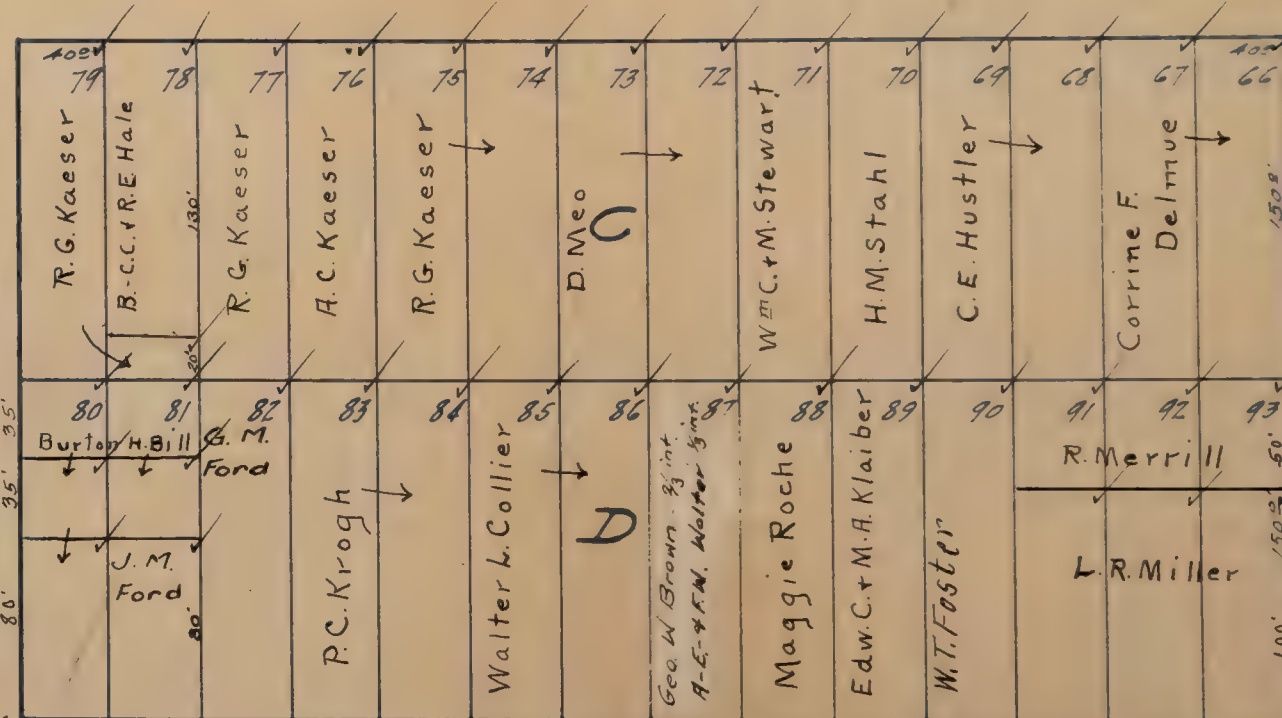 40 79 78 77 76 75 74 73 72 71 70 69 68 67 40 66
R.G. Kaeser
B.-C.C. + R.E. Hale
130'
20'
R.G. Kaeser
A.C. Kaeser
R.G. Kaeser
D. Meo
C
Wm C. + M. Stewart
H.M. Stahl
C.E. Hustler
Corrine F.
Delmue
150.8'
80 81 82 83 84 85 86 87 88 89 90 91 92 93
35'
35'
80'
Burton H. Bill
G.M.
Ford
J.M.
Ford
80'
P.C. Krogh
Walter L. Collier
D
Geo. W Brown - 2/3 int.
A-E-+F.W. Walter 1/3 int.
Maggie Roche
Edw. C. + M.A. Klaiber
W.T. Foster
R. Merrill
50'
L.R. Miller
100'